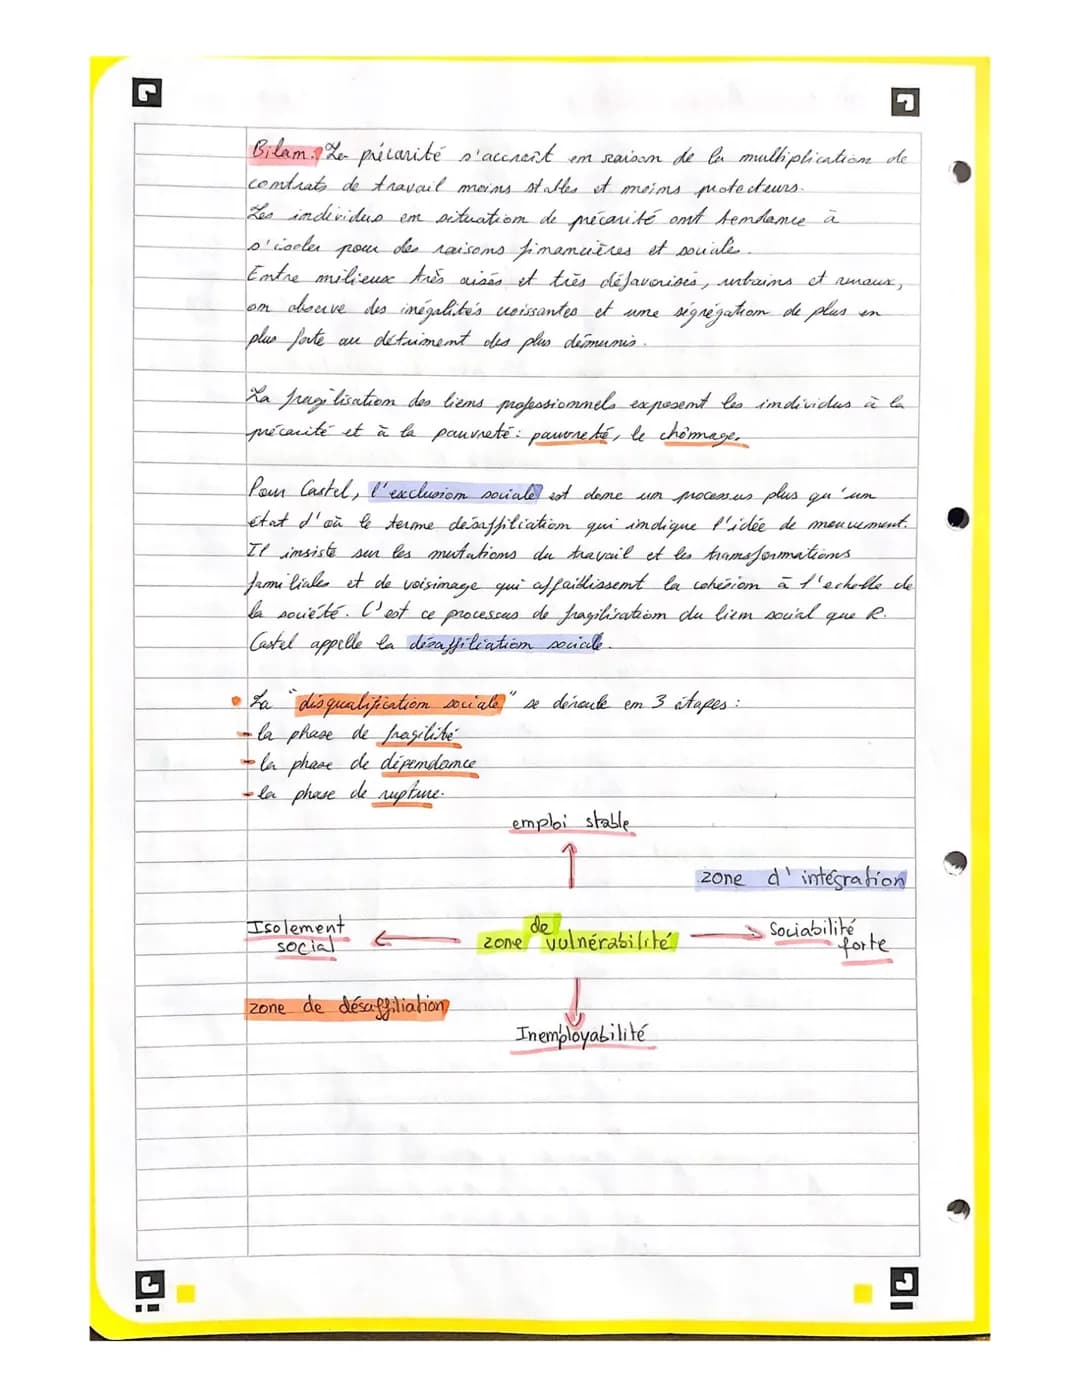 Bilan : La précarité s'accroît en raison de la multiplication de
contrats de travail moins stables et moins protecteurs.
Les individus en situation de précarité ont tendance à
s'isoler pour des raisons financières et sociales.
Entre milieux très aisés et très défavorisés, urbains et ruraux,
on observe des inégalités croissantes et une ségrégation de plus en
plus forte au détriment des plus démunis.
La fragilisation des liens professionnels exposent les individus à la
précarité et à la pauvreté : pauvreté, le chômage.
Pour Castel, l'exclusion sociale est donc un processus plus qu'un
état d'où le terme désaffiliation qui indique l'idée de mouvement.
Il insiste sur les mutations du travail et les transformations
familiales et de voisinage qui affaiblissent la cohésion à l'echelle de
la société. C'est ce processus de fragilisation du lien social que R.
Castel appelle la désaffiliation sociale.
• La "disqualification sociale" se déroule en 3 étapes :
- la phase de fragilité
- la phase de dépendance
- la phase de rupture.
emploi stable
zone d'intégration
Isolement
social
zone de vulnérabilité
Sociabilité
forte
zone de désaffiliation
Inemployabilité